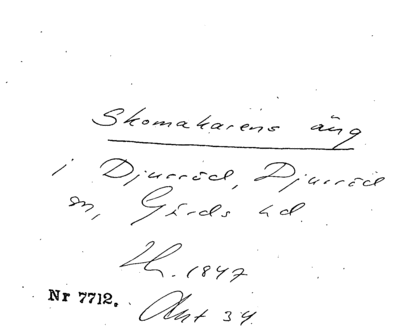 Skomakarens äng
i Djurröd, Djurröd
sn, Gärds hd.
H. 1847
Nr 7712.
Akt 34